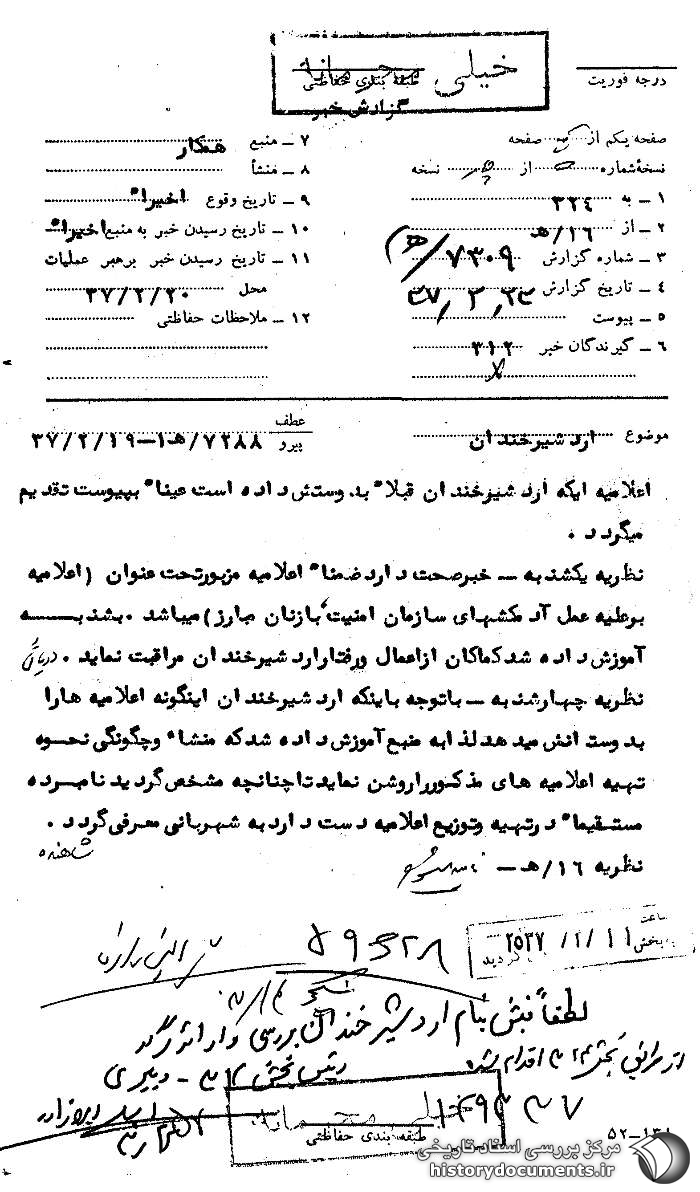 خیلی محرمانه
طبقه بندی حفاظتی
درجه فوریت
گزارش خبر
صفحه یکم از یک صفحه
نسخهٔ شماره از نسخه
۱ ـ به ۳۲۴
۲ ـ از ۱۶/هـ
۳ ـ شماره گزارش ۷۳۰۹/هـ۱
۴ ـ تاریخ گزارش
۵ ـ پیوست
۶ ـ گیرندگان خبر ۳۱۲
۷ ـ منبع همکار
۸ ـ منشأ
۹ ـ تاریخ وقوع اخیرا"
۱۰ ـ تاریخ رسیدن خبر به منبع اخیرا"
۱۱ ـ تاریخ رسیدن خبر برهبر عملیات
محل ۳۷/۲/۲۰
۱۲ ـ ملاحظات حفاظتی
موضوع ارد شیرخندان
عطف
پیرو ۷۲۸۸/هـ۱ـ۳۷/۲/۱۹
اعلامیه ایکه ارد شیرخندان قبلا" بدوستش داده است عینا" بپیوست تقدیم
میگردد .
نظریه یکشنبه ـ خبرصحت دارد ضمنا" اعلامیه مزبورتحت عنوان (اعلامیه
برعلیه عمل آدمکشهای سازمان امنیت بازنان مبارز) میباشد . بشنبـــه
آموزش داده شد کماکان ازاعمال ورفتارارد شیرخندان مراقبت نماید .
نظریه چهارشنبه ـ باتوجه باینکه ارد شیرخندان اینگونه اعلامیه هارا
بدوستانش میدهد لذا به منبع آموزش داده شد که منشاء وچگونگی نحـوه
تهیه اعلامیه های مذکورراروشن نماید تا چنانچه مشخص گردید نامبـرده
مستقیما" درتهیه وتوزیع اعلامیه دست دارد به شهربانی معرفی گردد .
نظریه ۱۶/هـ ـ
ساعت
۲۵۳۷ /۲/ ۱۱
بخش
گردید
لطفاً نبش بنام اردشیر خندان بررسی و ارائه گردد
از طرف بخش ۳۱۲ اقدام شد
رئیس بخش ۳۱۲ ـ دبیری
خیلی محرمانه
طبقه بندی حفاظتی
۵۲ـ۱۳۱
مرکز بررسی اسناد تاریخی
historydocuments.ir